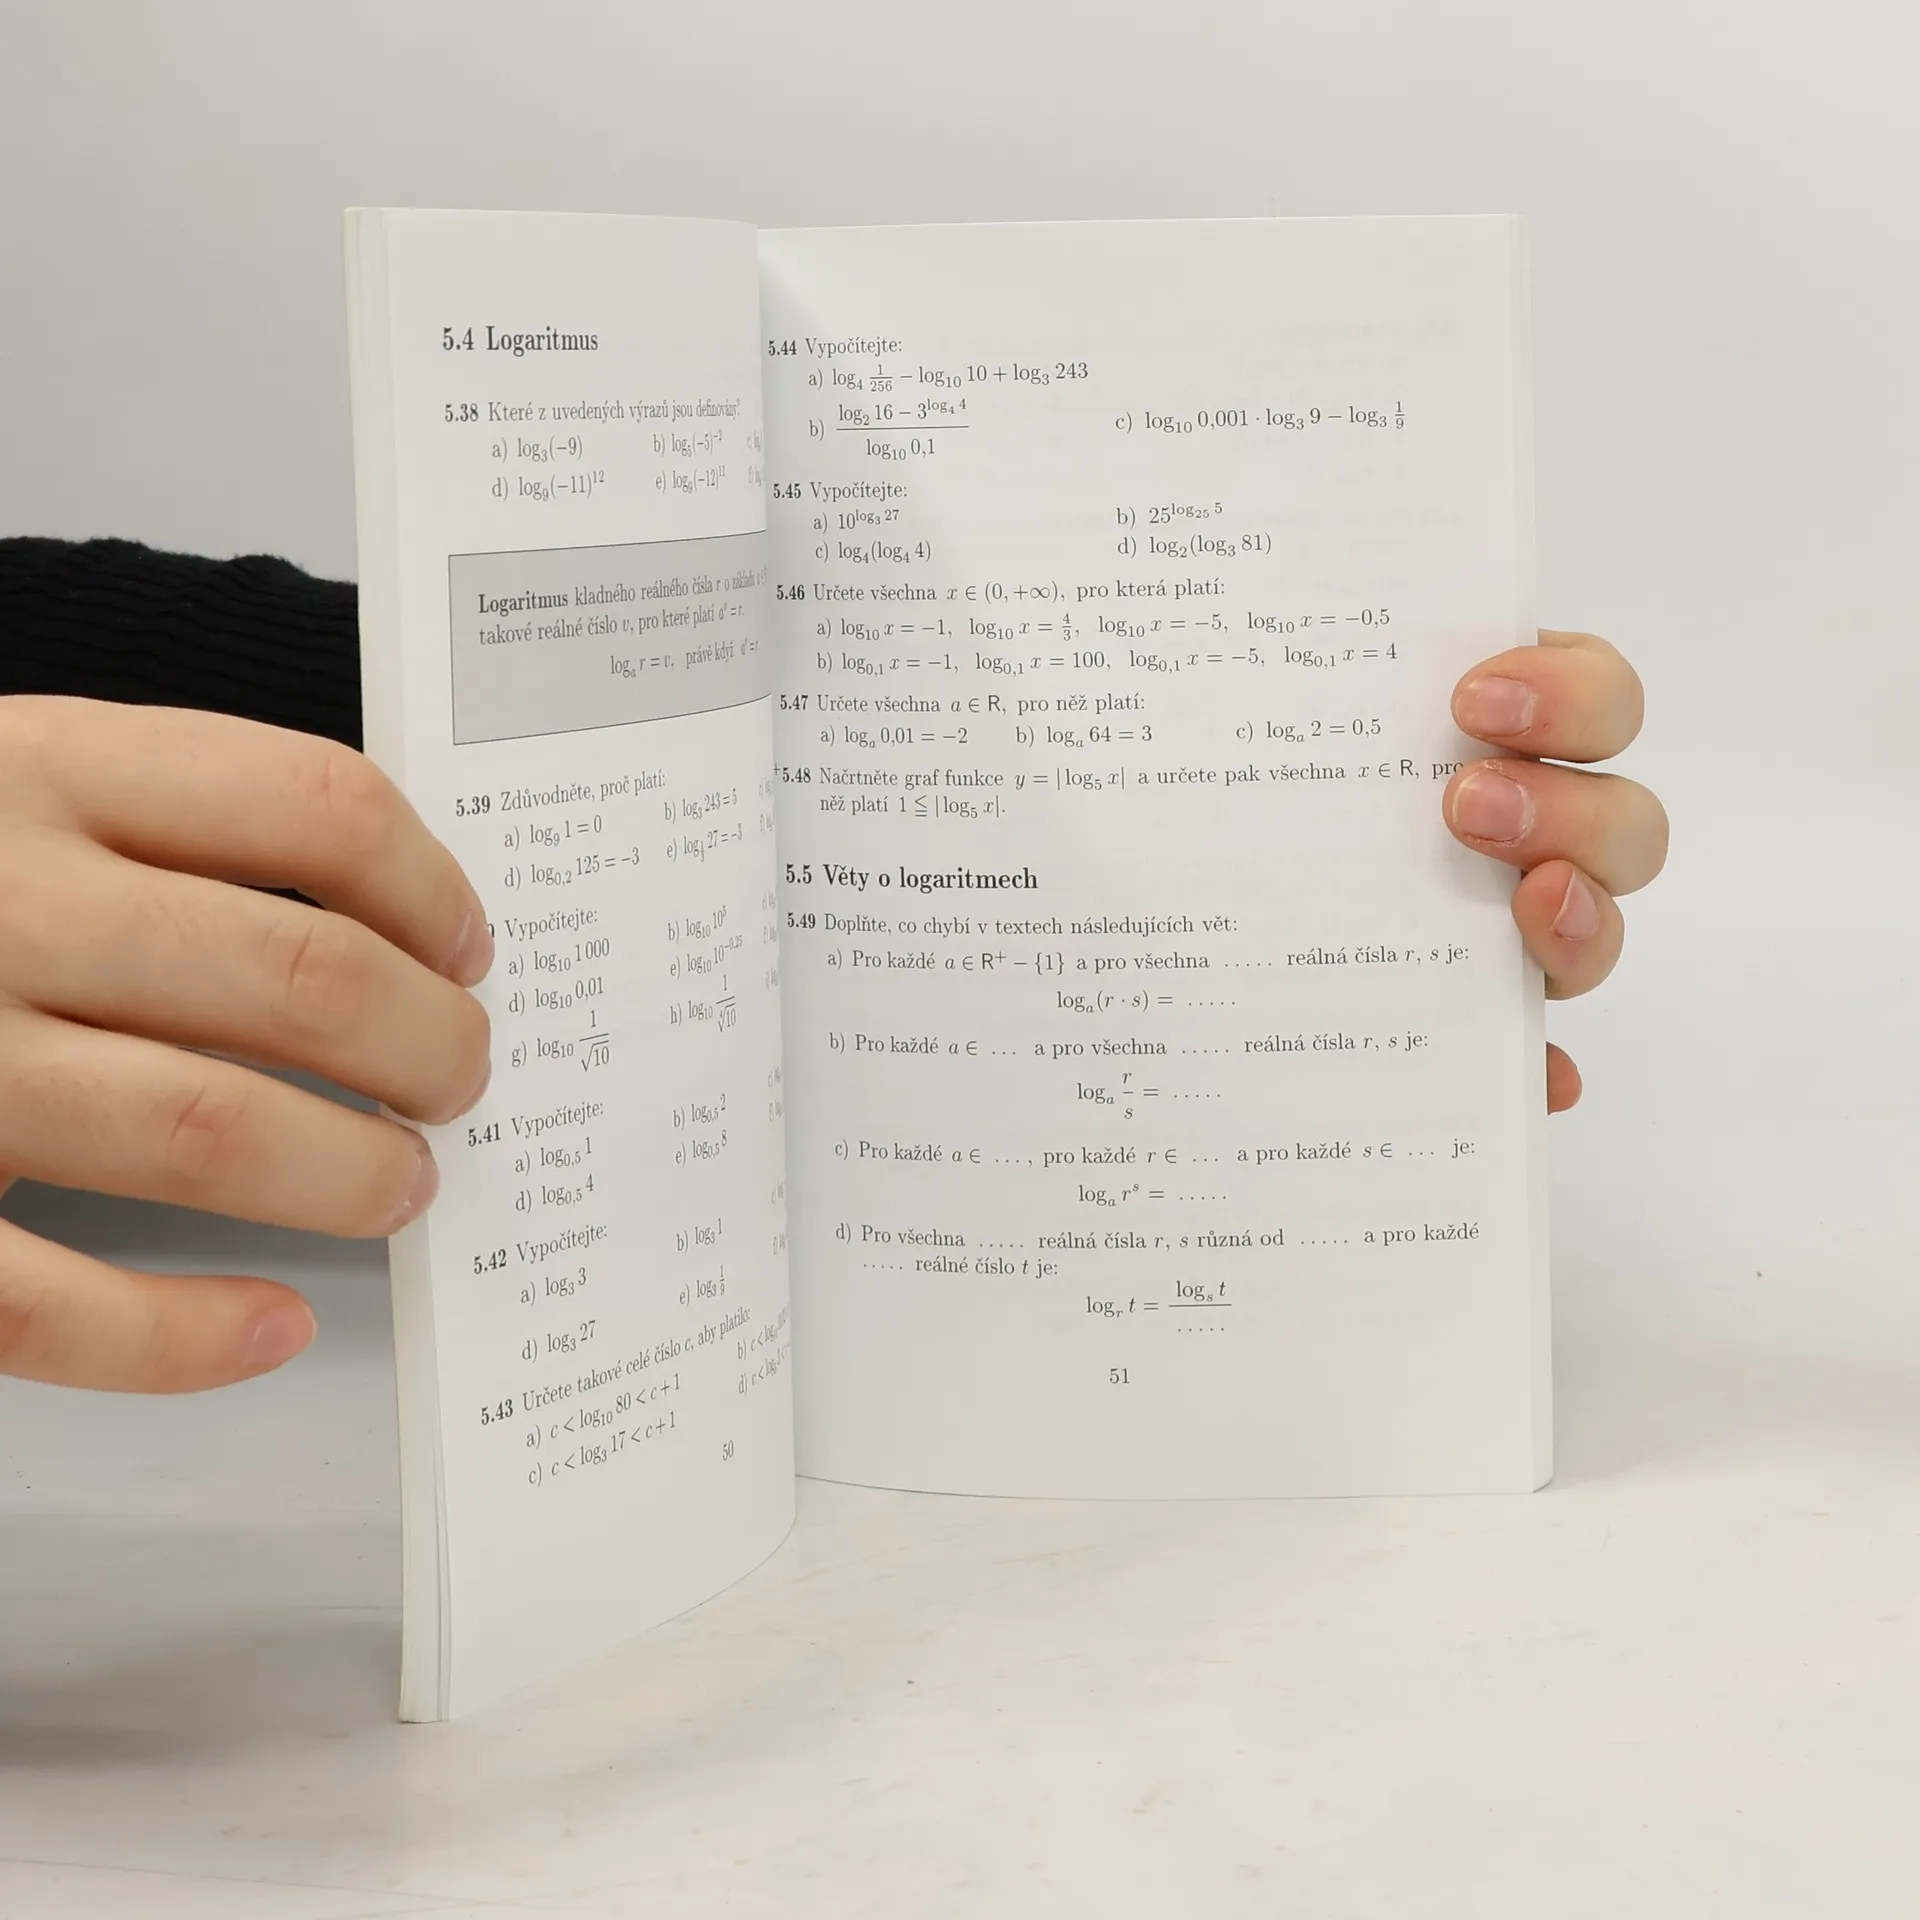 5.4 Logaritmus
5.38 Které z uvedených výrazů jsou definovány?
a) log₃(−9) b) log₅(−5)⁻²
d) log₉(−11)¹² e) log₉(−12)¹¹
Logaritmus kladného reálného čísla r o základu
takové reálné číslo v, pro které platí aᵛ = r.
logₐ r = v, právě když aᵛ = r
5.39 Zdůvodněte, proč platí:
a) log₉ 1 = 0 b) log₃ 243 = 5
d) log₀,₂ 125 = −3 e) log_{1/3} 27 = −3
Vypočítejte:
a) log₁₀ 1 000 b) log₁₀ 10⁵
d) log₁₀ 0,01 e) log₁₀ 10^{−0,25}
g) log₁₀ 1/√10 h) log₁₀
5.41 Vypočítejte:
a) log₀,₅ 1 b) log₀,₅ 2
d) log₀,₅ 4 e) log₀,₅ 8
5.42 Vypočítejte:
a) log₃ 3 b) log₃ 1
d) log₃ 27 e) log₃ 1/9
5.43 Určete takové celé číslo c, aby platilo:
a) c < log₁₀ 80 < c + 1 b) c <
c) c < log₃ 17 < c + 1 d) c <
50
5.44 Vypočítejte:
a) log₄ 1/256 − log₁₀ 10 + log₃ 243
b) (log₂ 16 − 3^{log₄ 4})/(log₁₀ 0,1) c) log₁₀ 0,001 · log₃ 9 − log₃ 1/9
5.45 Vypočítejte:
a) 10^{log₃ 27} b) 25^{log₂₅ 5}
c) log₄(log₄ 4) d) log₂(log₃ 81)
5.46 Určete všechna x ∈ (0, +∞), pro která platí:
a) log₁₀ x = −1, log₁₀ x = 4/3, log₁₀ x = −5, log₁₀ x = −0,5
b) log₀,₁ x = −1, log₀,₁ x = 100, log₀,₁ x = −5, log₀,₁ x = 4
5.47 Určete všechna a ∈ R, pro něž platí:
a) logₐ 0,01 = −2 b) logₐ 64 = 3 c) logₐ 2 = 0,5
+5.48 Načrtněte graf funkce y = | log₅ x| a určete pak všechna x ∈ R, pro
něž platí 1 ≦ | log₅ x|.
5.5 Věty o logaritmech
5.49 Doplňte, co chybí v textech následujících vět:
a) Pro každé a ∈ R⁺ − {1} a pro všechna ..... reálná čísla r, s je:
logₐ(r · s) = .....
b) Pro každé a ∈ ... a pro všechna ..... reálná čísla r, s je:
logₐ r/s = .....
c) Pro každé a ∈ ..., pro každé r ∈ ... a pro každé s ∈ ... je:
logₐ rˢ = .....
d) Pro všechna ..... reálná čísla r, s různá od ..... a pro každé
..... reálné číslo t je:
logᵣ t = logₛ t/.....
51